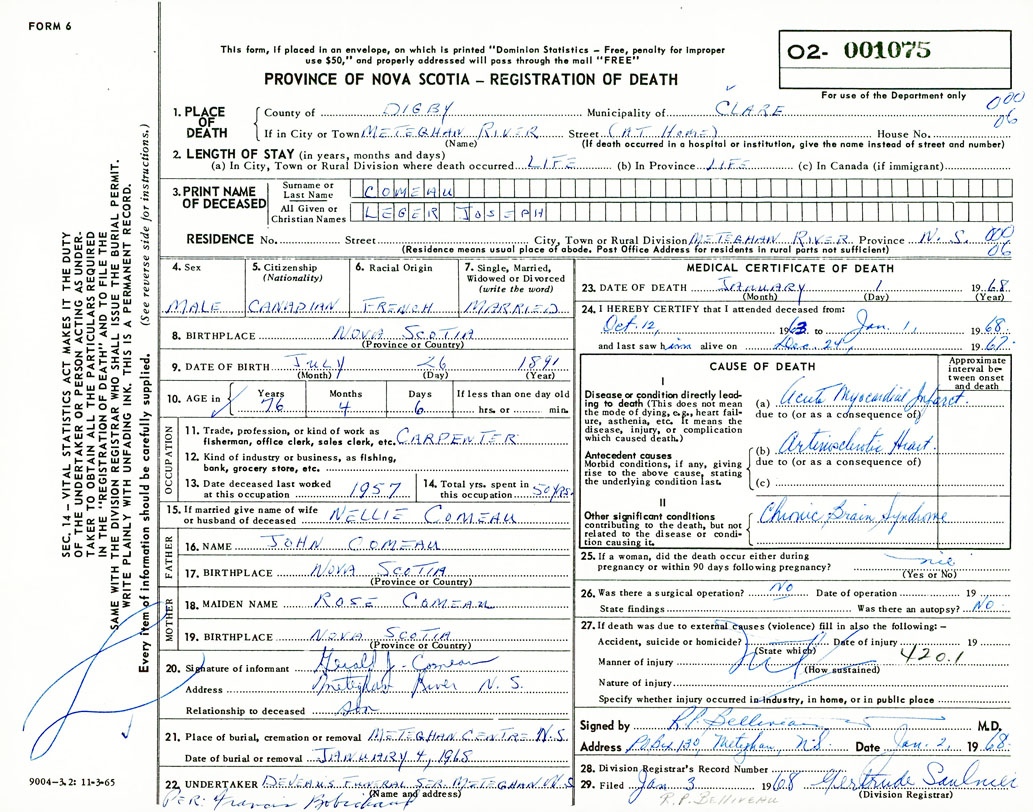 FORM 6
This form, if placed in an envelope, on which is printed "Dominion Statistics – Free, penalty for improper
use $50," and properly addressed will pass through the mail "FREE"
O2- 001075
PROVINCE OF NOVA SCOTIA – REGISTRATION OF DEATH
For use of the Department only
000
06
1. PLACE OF DEATH
County of DIGBY Municipality of CLARE
If in City or Town METEGHAN RIVER Street (AT HOME) House No.
(Name) (If death occurred in a hospital or institution, give the name instead of street and number)
2. LENGTH OF STAY (in years, months and days)
(a) In City, Town or Rural Division where death occurred LIFE (b) In Province LIFE (c) In Canada (if immigrant)
3. PRINT NAME OF DECEASED
Surname or Last Name COMEAU
All Given or Christian Names LEGER JOSEPH
RESIDENCE No. Street City, Town or Rural Division METEGHAN RIVER Province N.S. 000
(Residence means usual place of abode. Post Office Address for residents in rural parts not sufficient) 06
4. Sex
MALE
5. Citizenship (Nationality)
CANADIAN
6. Racial Origin
FRENCH
7. Single, Married, Widowed or Divorced (write the word)
MARRIED
8. BIRTHPLACE NOVA SCOTIA
(Province or Country)
9. DATE OF BIRTH JULY 26 1891
(Month) (Day) (Year)
10. AGE in Years Months Days If less than one day old
76 4 6 hrs. or min.
OCCUPATION
11. Trade, profession, or kind of work as
fisherman, office clerk, sales clerk, etc. CARPENTER
12. Kind of industry or business, as fishing,
bank, grocery store, etc.
13. Date deceased last worked
at this occupation 1957
14. Total yrs. spent in
this occupation 50 YRS.
15. If married give name of wife
or husband of deceased NELLIE COMEAU
FATHER
16. NAME JOHN COMEAU
17. BIRTHPLACE NOVA SCOTIA
(Province or Country)
MOTHER
18. MAIDEN NAME ROSE COMEAU
19. BIRTHPLACE NOVA SCOTIA
(Province or Country)
20. Signature of informant J. Comeau
Address Meteghan River N.S.
Relationship to deceased son
21. Place of burial, cremation or removal METEGHAN CENTRE N.S.
Date of burial or removal JANUARY 4, 1968
22. UNDERTAKER DEVEAU'S FUNERAL SER. METEGHAN N.S.
(Name and address)
PER: Francis
MEDICAL CERTIFICATE OF DEATH
23. DATE OF DEATH JANUARY 1 1968
(Month) (Day) (Year)
24. I HEREBY CERTIFY that I attended deceased from:
Oct. 12, 1963 to Jan. 1, 1968
and last saw him alive on Dec 24, 1967.
CAUSE OF DEATH
Approximate interval between onset and death
I
Disease or condition directly leading
to death (This does not mean
the mode of dying, e.g., heart failure,
asthenia, etc. It means the
disease, injury, or complication
which caused death.)
(a) Acute Myocardial Infarct.
due to (or as a consequence of)
Antecedent causes
Morbid conditions, if any, giving
rise to the above cause, stating
the underlying condition last.
(b) Arteriosclerotic Heart.
due to (or as a consequence of)
(c)
II
Other significant conditions
contributing to the death, but not
related to the disease or condition
causing it.
Chronic Brain Syndrome
25. If a woman, did the death occur either during
pregnancy or within 90 days following pregnancy? nil
(Yes or No)
26. Was there a surgical operation? NO Date of operation 19
State findings Was there an autopsy? NO
27. If death was due to external causes (violence) fill in also the following:–
Accident, suicide or homicide? Date of injury 19
(State which)
Manner of injury 420.1
(How sustained)
Nature of injury
Specify whether injury occurred in industry, in home, or in public place
Signed by R.P. Belliveau M.D.
Address P.O. Box 120, Meteghan, N.S. Date Jan. 2, 1968.
28. Division Registrar's Record Number
29. Filed Jan 3 1968 Gertrude Saulnier
(Division Registrar)
R.P. BELLIVEAU
SEC. 14 – VITAL STATISTICS ACT MAKES IT THE DUTY
OF THE UNDERTAKER OR PERSON ACTING AS UNDERTAKER
TO OBTAIN ALL THE PARTICULARS REQUIRED
IN THE "REGISTRATION OF DEATH" AND TO FILE THE
SAME WITH THE DIVISION REGISTRAR WHO SHALL ISSUE THE BURIAL PERMIT.
WRITE PLAINLY WITH UNFADING INK. THIS IS A PERMANENT RECORD.
Every item of information should be carefully supplied. (See reverse side for instructions.)
9004–3.2: 11-3-65